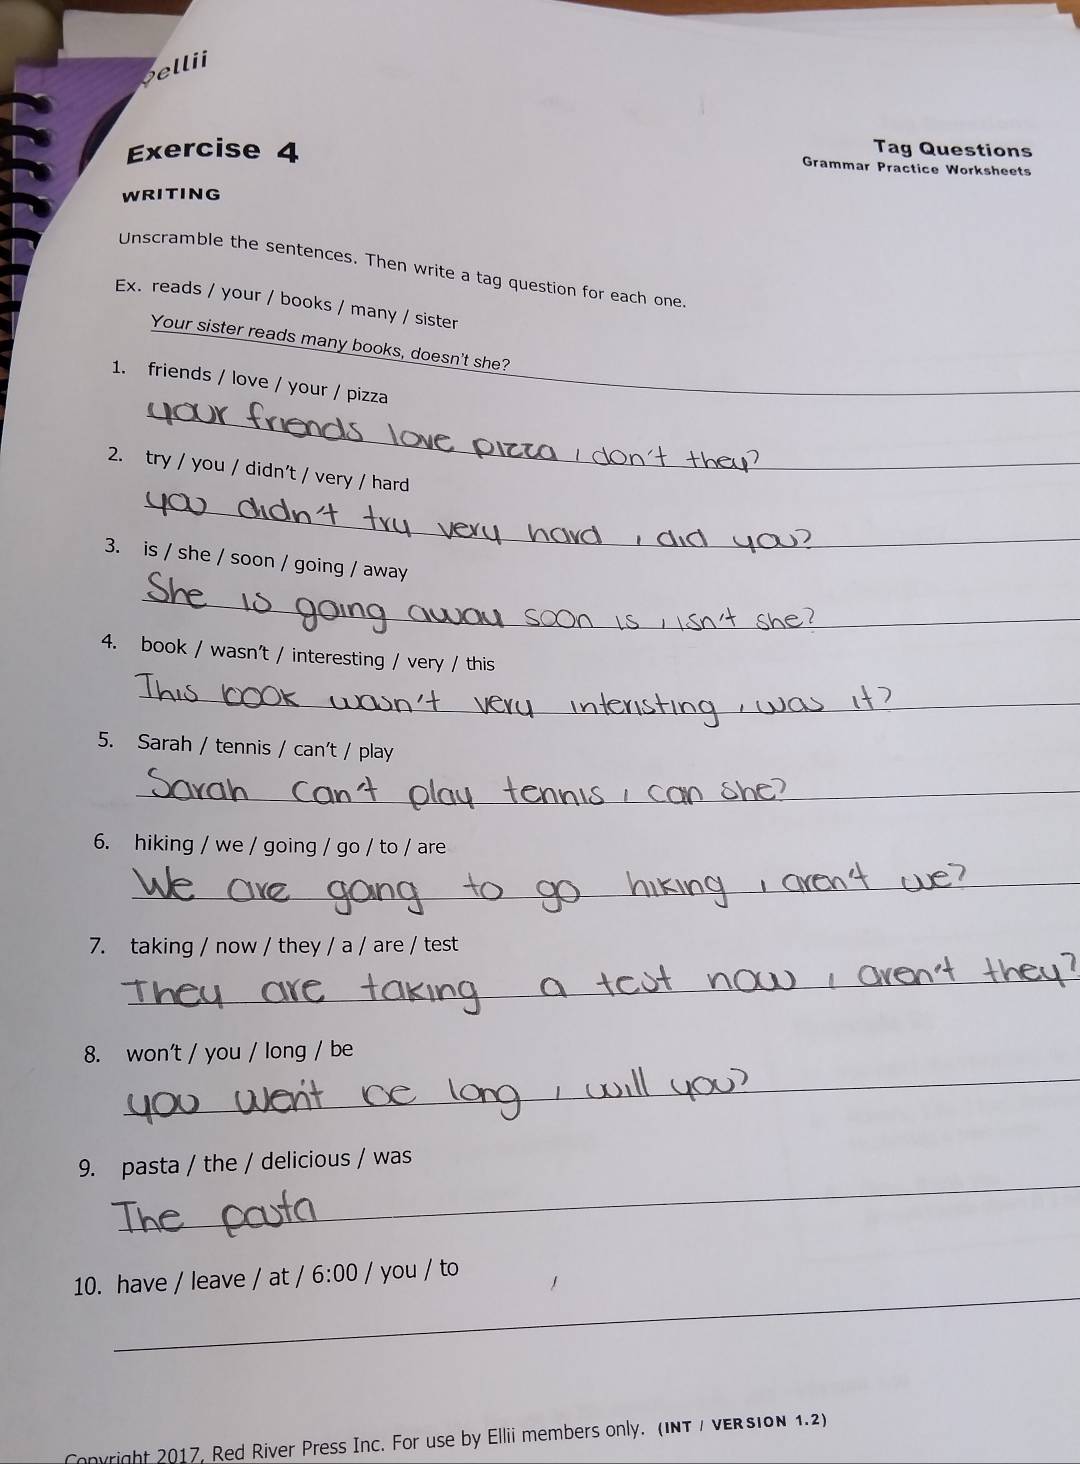 ellii
Exercise 4
Tag Questions
Grammar Practice Worksheets
WRITING
Unscramble the sentences. Then write a tag question for each one.
Ex. reads / your / books / many / sister
Your sister reads many books, doesn't she?
1. friends / love / your / pizza
your friends love pizza, don't they?
2. try / you / didn't / very / hard
you didn't try very hard, did you?
3. is / she / soon / going / away
She is going away soon is, isn't she?
4. book / wasn't / interesting / very / this
This book wasn't very interisting, was it?
5. Sarah / tennis / can't / play
Sarah can't play tennis, can she?
6. hiking / we / going / go / to / are
We are going to go hiking, aren't we?
7. taking / now / they / a / are / test
They are taking a test now, aren't they?
8. won't / you / long / be
you won't be long, will you?
9. pasta / the / delicious / was
The pasta
10. have / leave / at / 6:00 / you / to
Copyright 2017, Red River Press Inc. For use by Ellii members only. (INT / VERSION 1.2)